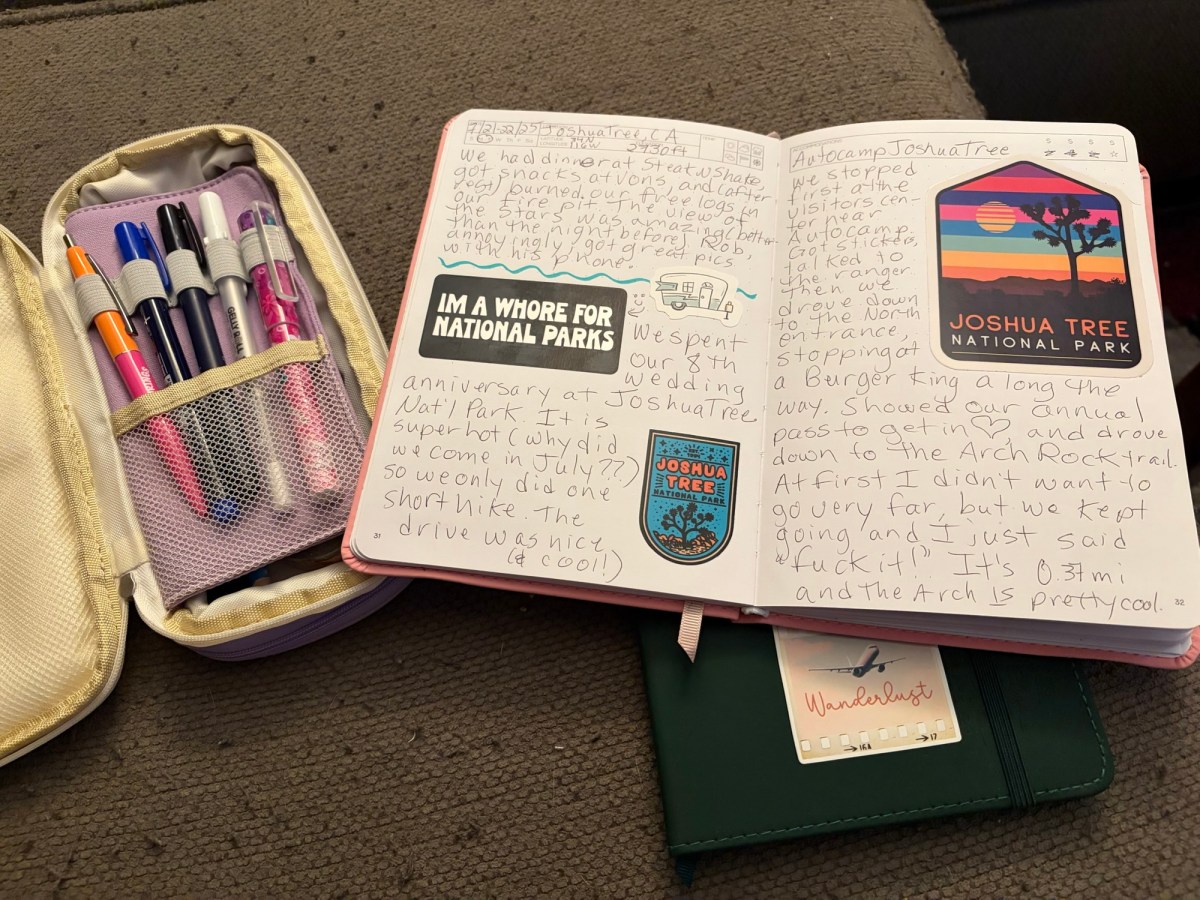 7/21-22/25 Joshua Tree, CA
34N
116W 2930ft
We had dinner at Steak N Shake,
got snacks at Vons, and (after
rest) burned our free logs in
our fire pit. The view of
the stars was amazing (better
than the night before). Rob,
annoyingly, got great pics
with his phone.
IM A WHORE FOR
NATIONAL PARKS
We spent
our 8th
wedding
anniversary at Joshua Tree
Nat'l Park. It is
super hot (why did
we come in July??)
so we only did one
short hike. The
drive was nice
(& cool!)
JOSHUA
TREE
NATIONAL PARK
31
Autocamp Joshua Tree
S S S S
We stopped
first at the
visitors cen-
ter near
Autocamp.
Got stickers,
talked to
the ranger
Then we
drove down
to the North
entrance,
stopping at
a Burger King along the
way. Showed our annual
pass to get in ♡ and drove
down to the Arch Rock trail.
At first I didn't want to
go very far, but we kept
going and I just said
"fuck it!" It's 0.37mi
and the Arch is pretty cool.
32
JOSHUA TREE
NATIONAL PARK
GELLY R
Wanderlust
→16A →17